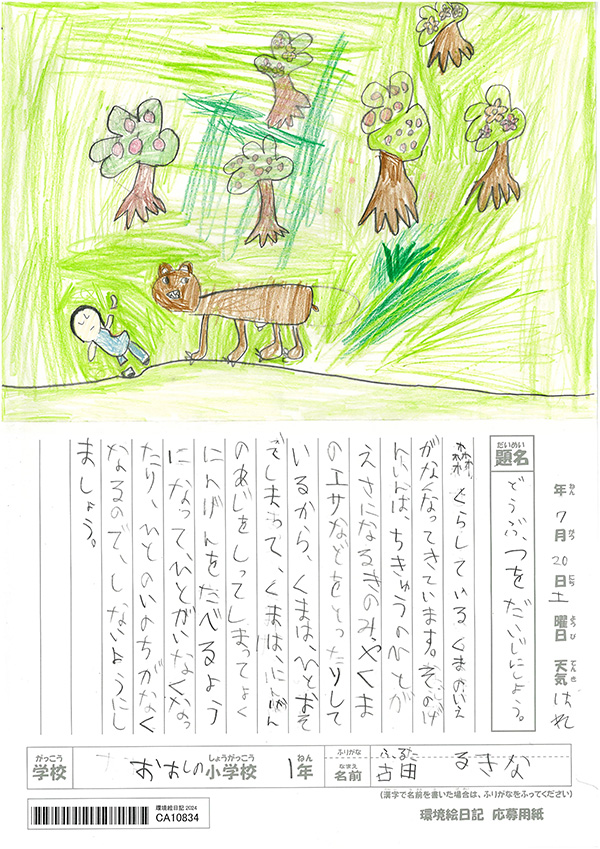 年 ねん 7 月 がつ 20 日 にち 土 曜日 ようび 天気 てんき はれ
題名 だいめい
どうぶつをだいじにしよう。
森森 くらしている くまのいえ
がなくなってきています。そのげ
んいんは、ちきゅうのひとが
えさになるきのみやくま
のエサなどをとったりして
いるから、くまは、ひとおそ
でしまって、くまは、にんげん
のあじをしってしまってよく
にんげんをたべるよう
になって、ひとがいなくなっ
たり、ひとのいのちがなく
なるので、しないようにし
ましょう。
学校 がっこう おおしの 小学校 しょうがっこう 1 年 ねん
ふりがな ふるた
名前 なまえ 古田 るきな
(漢字で名前を書いた場合は、ふりがなをふってください)
環境絵日記2024
CA10834
環境絵日記 応募用紙